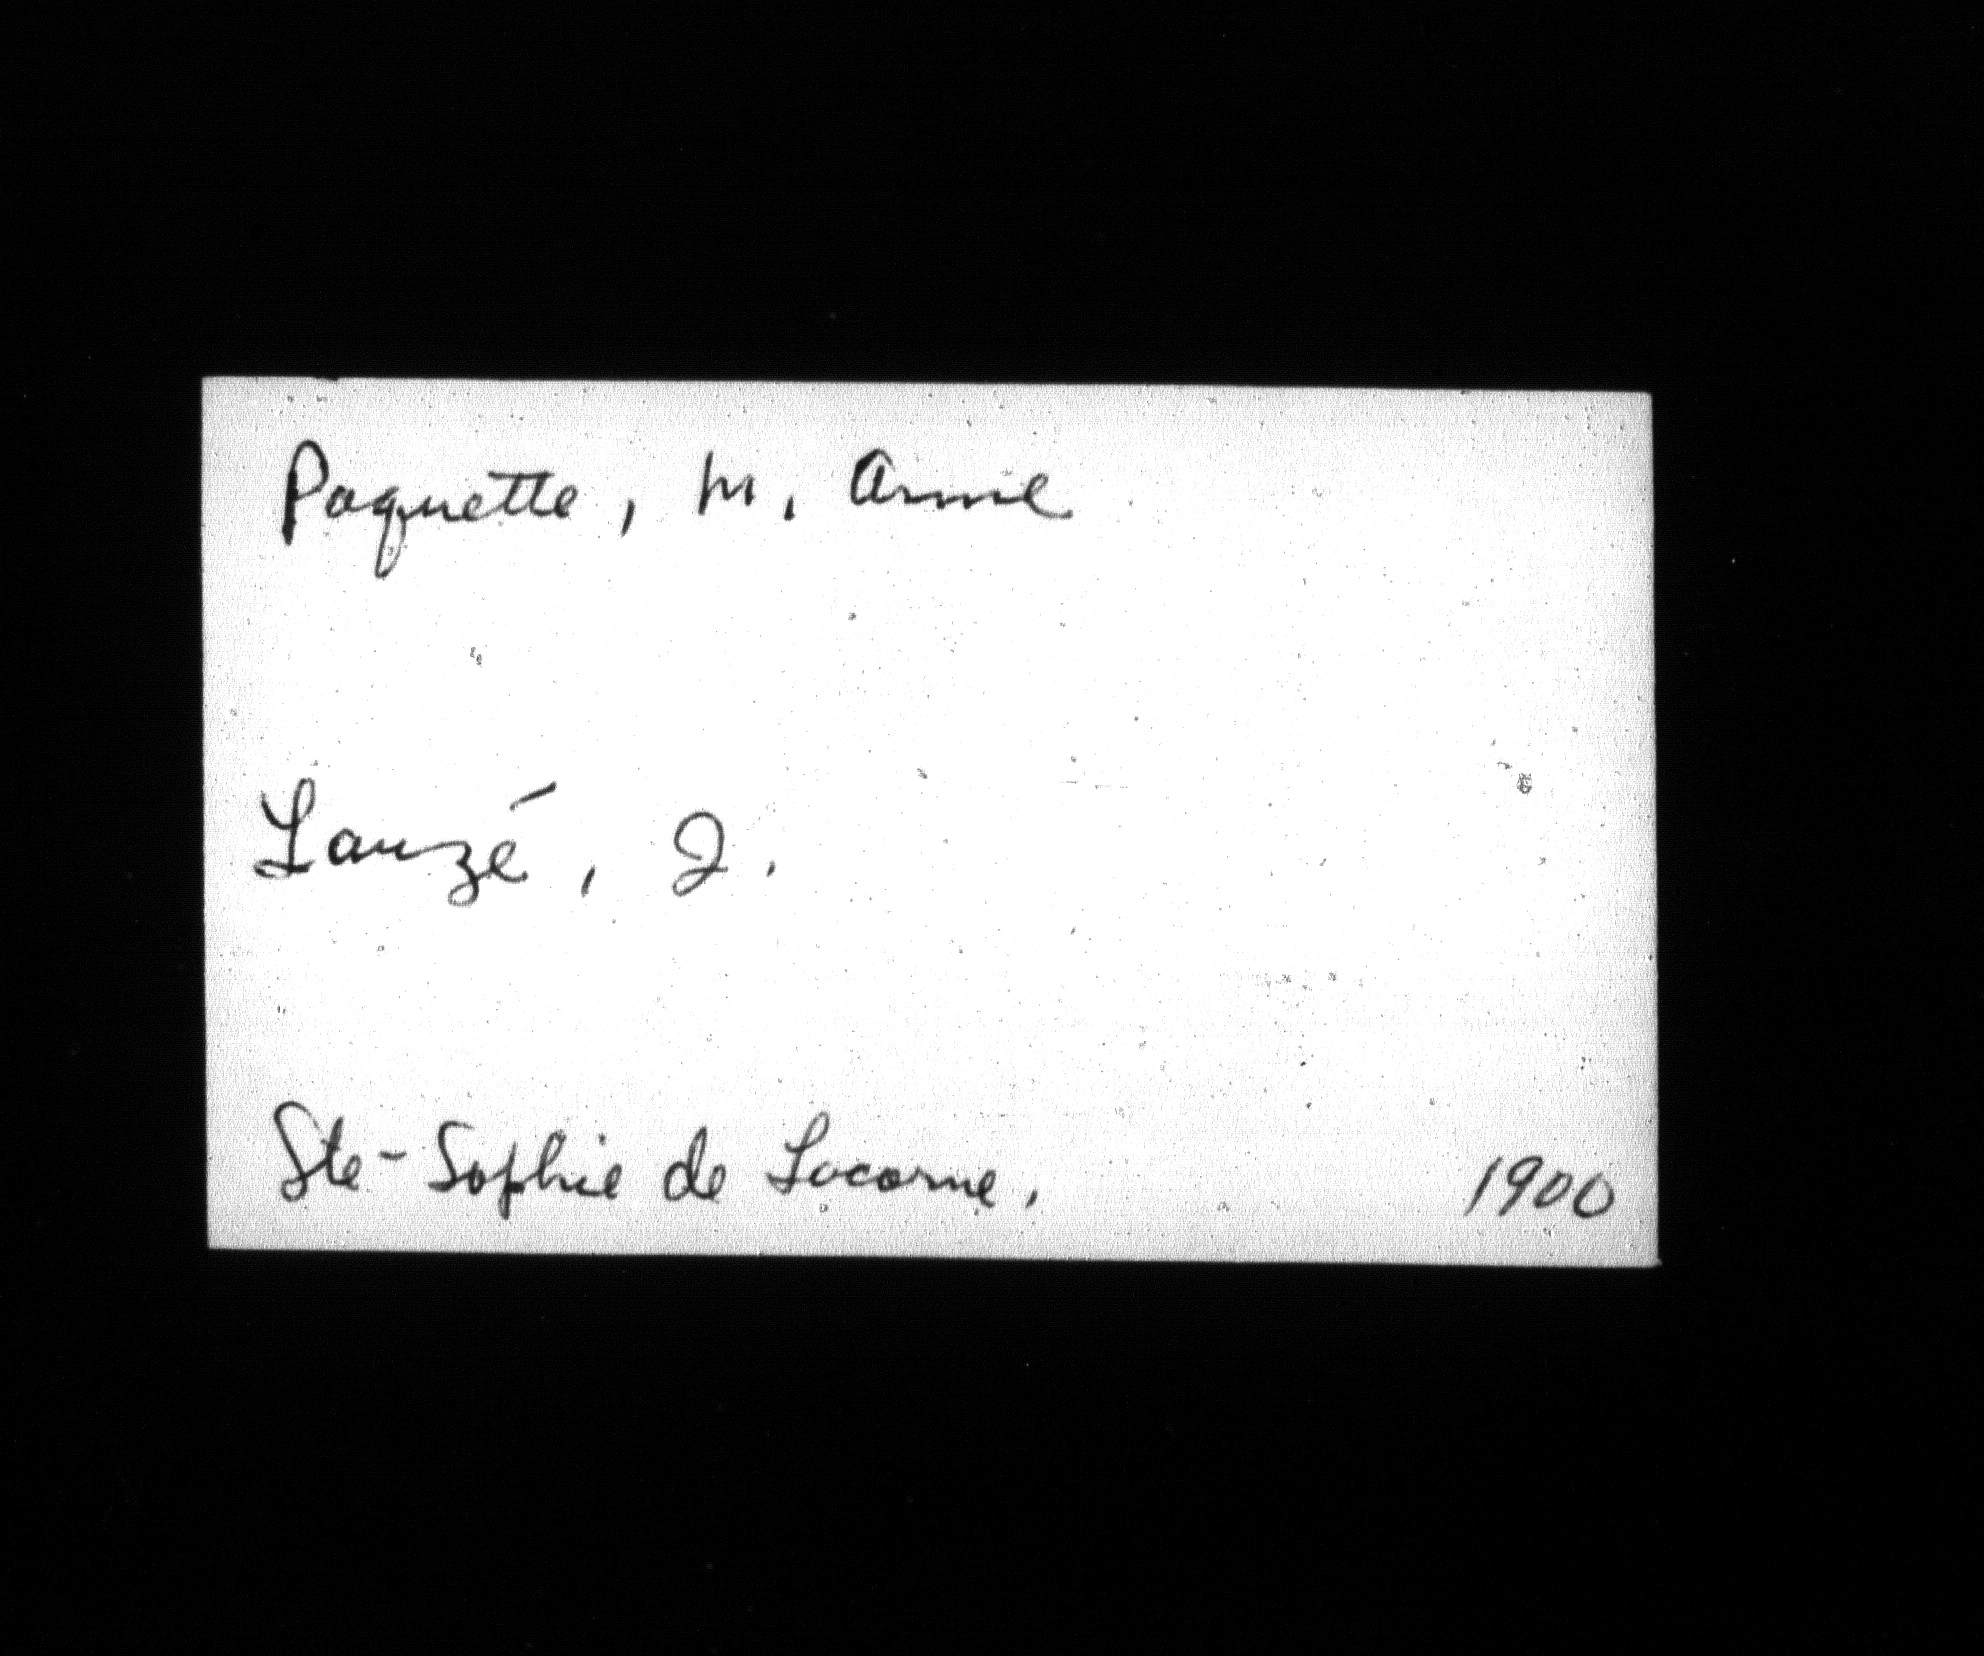 Paquette, M. Anne
Lauzé, J.
Ste-Sophie de Lacorne, 1900